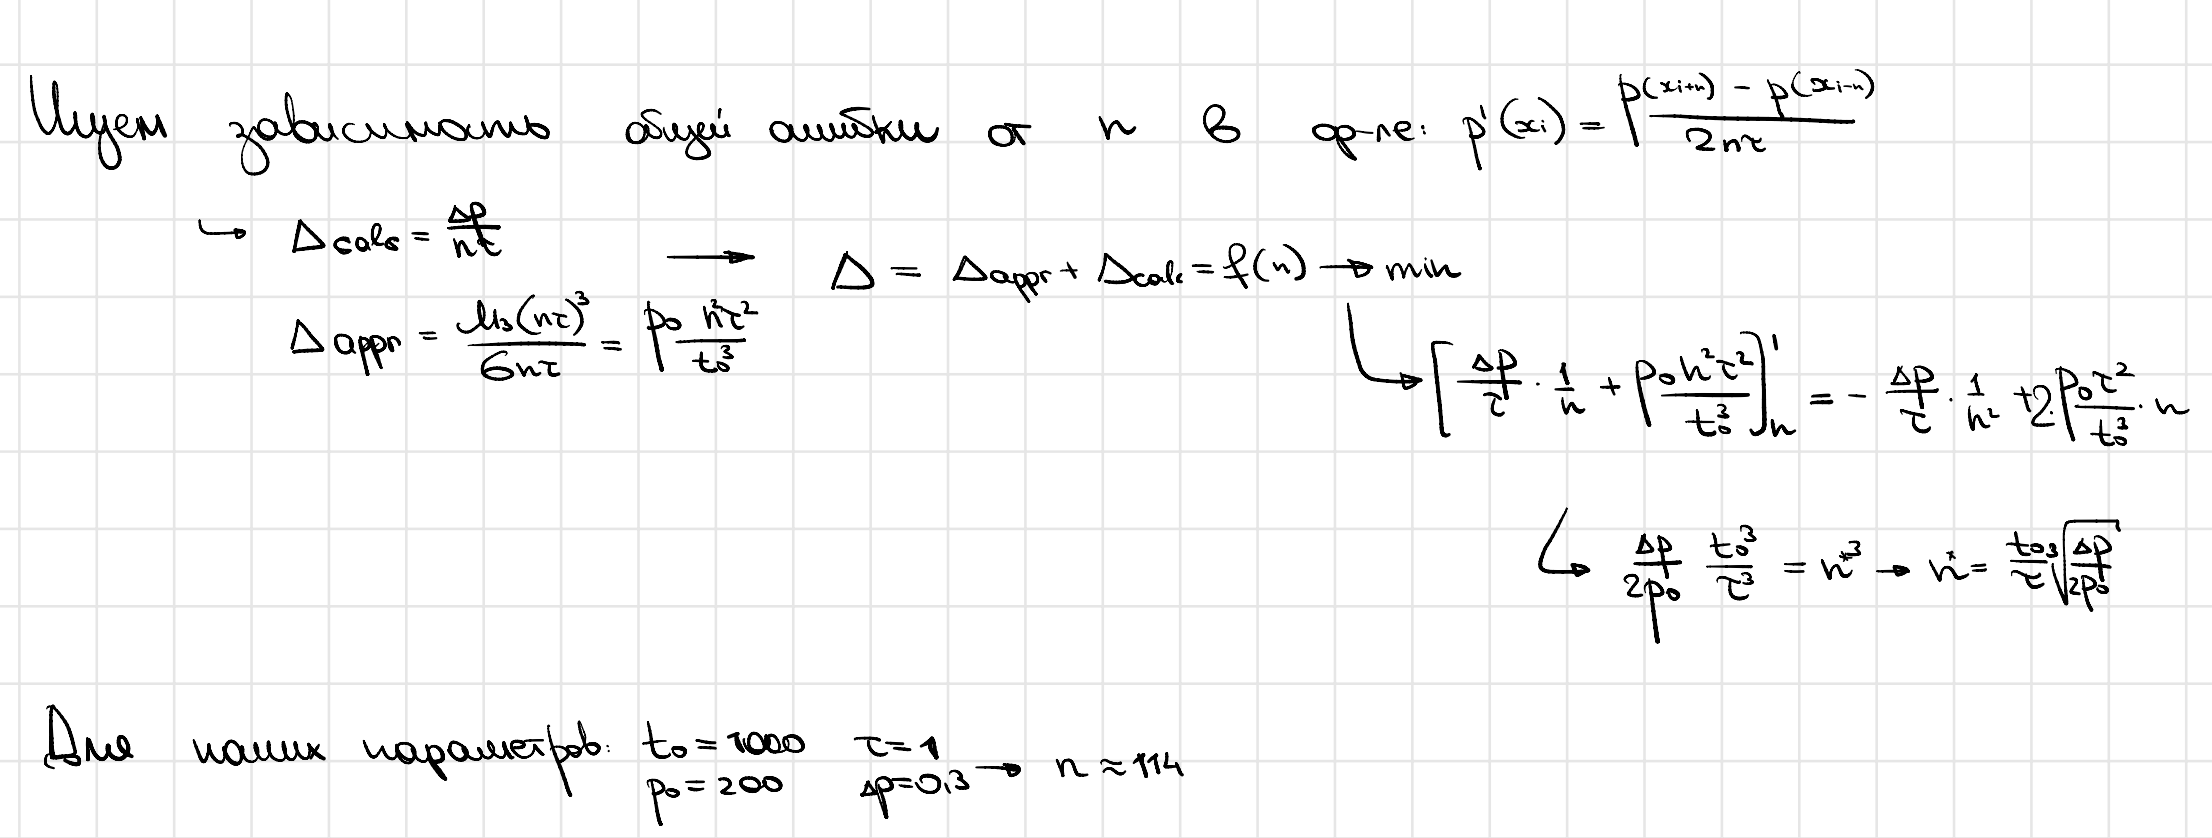 Ищем зависимость общей ошибки от n в ф-ле: p'(xᵢ) = (p(xᵢ₊ₙ) - p(xᵢ₋ₙ)) / 2nτ
↳ Δcalc = Δp / nτ
→ Δ = Δappr + Δcalc = f(n) → min
Δappr = M₃(nτ)³ / 6nτ = p₀ n²τ² / t₀³
↳ [Δp/τ · 1/n + p₀n²τ² / t₀³]'ₙ = - Δp/τ · 1/n² + 2 p₀τ²/t₀³ · n
↳ Δp/2p₀ t₀³/τ³ = n*³ → n* = t₀/τ ∛(Δp/2p₀)
Для наших параметров: t₀ = 1000 τ = 1
p₀ = 200 Δp = 0,3 → n ≈ 114